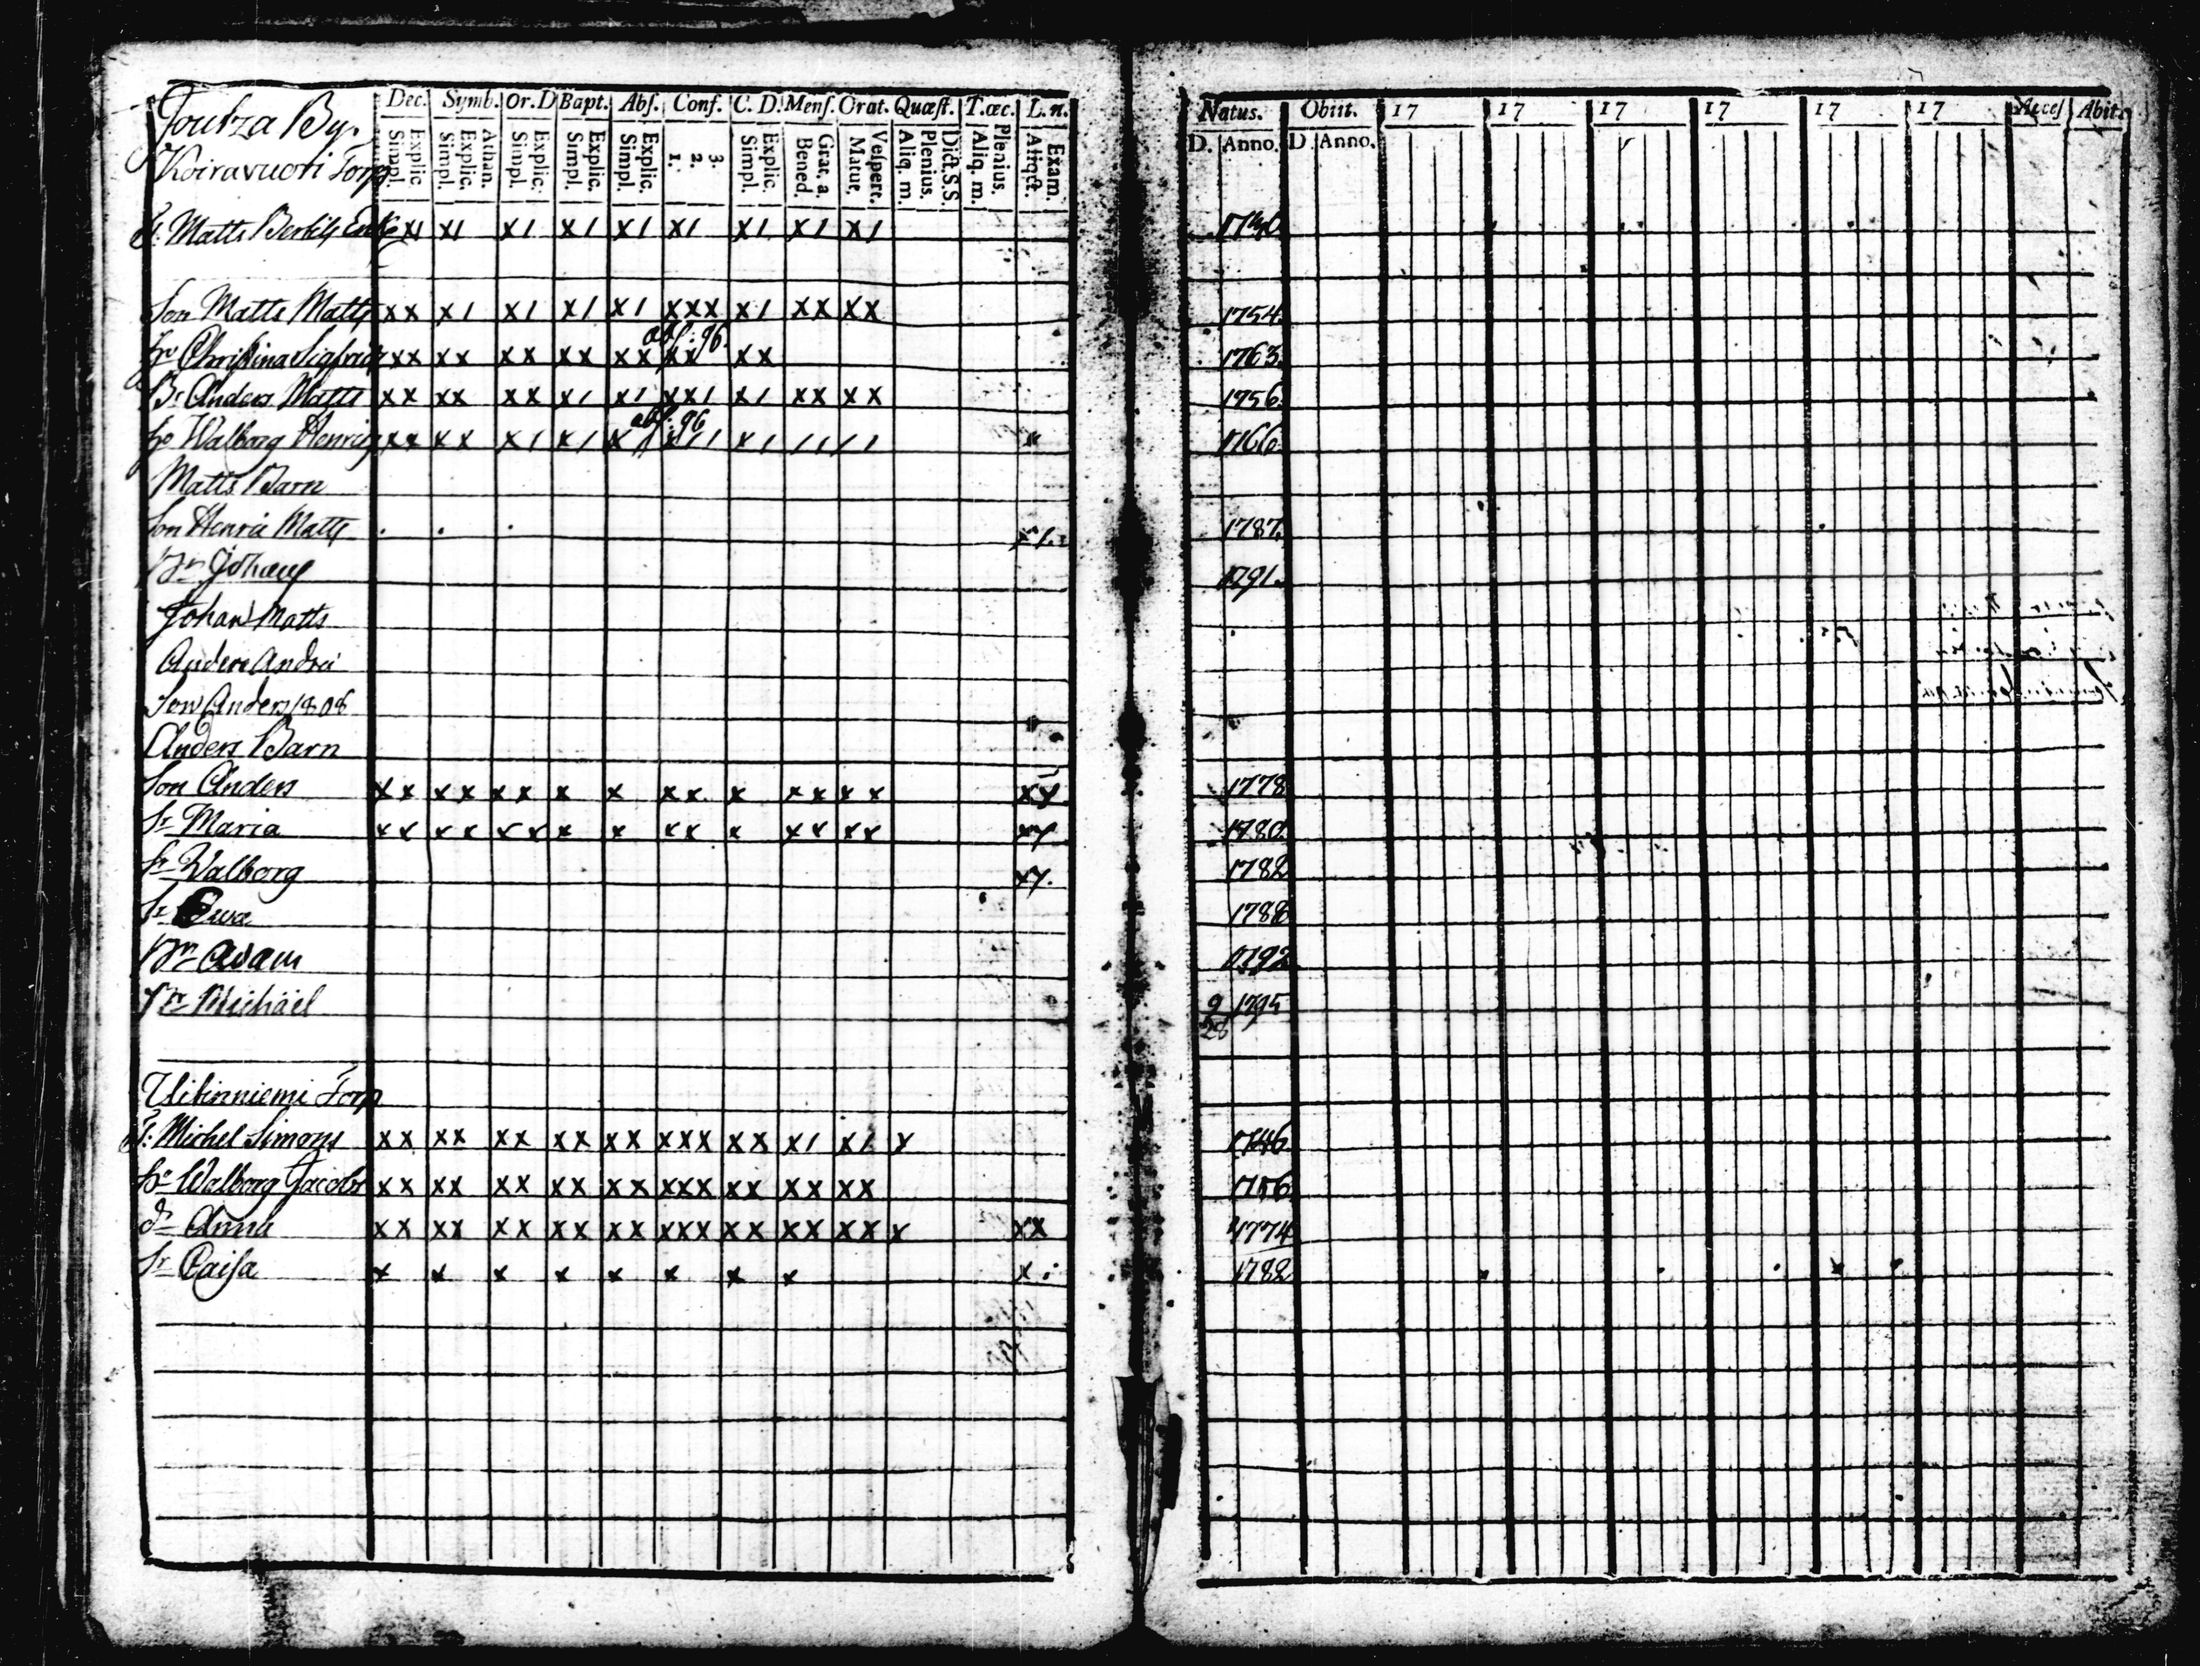 Joutza By.
Koiravuori Torp
Dec. Symb. Or. D Bapt. Abs. Conf. C. D. Mens. Orat. Quæst. T. œc. L. n.
Simpl. Explic. Simpl. Explic. Athan. Simpl. Explic. Simpl. Explic. Simpl. Explic. 1. 2. 3. Simpl. Explic. Bened. Grat. a. Matut. Vespert. Aliq. m. Plenius. Dict. S. S. Aliq. m. Plenius. Exam.
Natus. Obiit. 17 17 17 17 17 17 Acces Abit.
D. Anno. D. Anno.
Matts Bertils Enka x1 x1 x1 x1 x1 x1 x1 x1 x1
Son Matts Matts xx x1 x1 x1 x1 xxx x1 xx xx 1754.
abs: 96.
Christina Sigfrids xx xx xx xx xx xx xx 1763.
Br Anders Matts xx xx xx x1 x1 xx1 x1 xx xx 1756.
abs: 96
Walborg Henrics xx xx x1 x1 x1 x11 x1 11 11 x 1766.
Matts Barn
Son Henric Matts 1787.
Br Johans 1791.
Johan Matts
Anders Andrei
Son Anders 1808
Anders Barn
Son Anders xx xx xx x x xx x xx xx xx 1778
Sr Maria xx xx xx x x xx x xx xx xx 1780.
Sr Walborg xx. 1782
Sr Ewa 1788
Br Adam 1792
Br Michäel 9/28 1795
Torp
Michel Simons xx xx xx xx xx xxx xx x1 x1 x 1746.
Walborg Jacobs xx xx xx xx xx xxx xx xx xx 1756.
dr Anna xx xx xx xx xx xxx xx xx xx x xx 1774
Sr Caisa x x x x x x x x x 1782